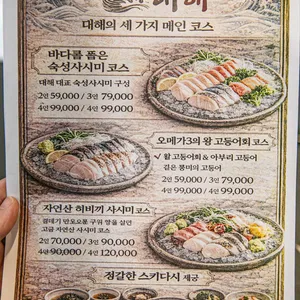 대해
대해의 세 가지 메인 코스
바다를 품은
숙성사시미 코스
대해 대표 숙성사시미 구성
2인 59,000 / 3인 79,000
4인 99,000 / 4인 99,000
오메가3의 왕 고등어회 코스
✓ 왕 고등어회 & 아부리 고등어
깊은 풍미의 고등어
2인 59,000 / 3인 79,000
4인 99,000 / 4인 99,000
자연산 히비끼 사시미 코스
고급 자연산 사시미 코스
2인 70,000 / 3인 90,000
4인 90,000 / 4인 120,000
정갈한 스키다시 제공